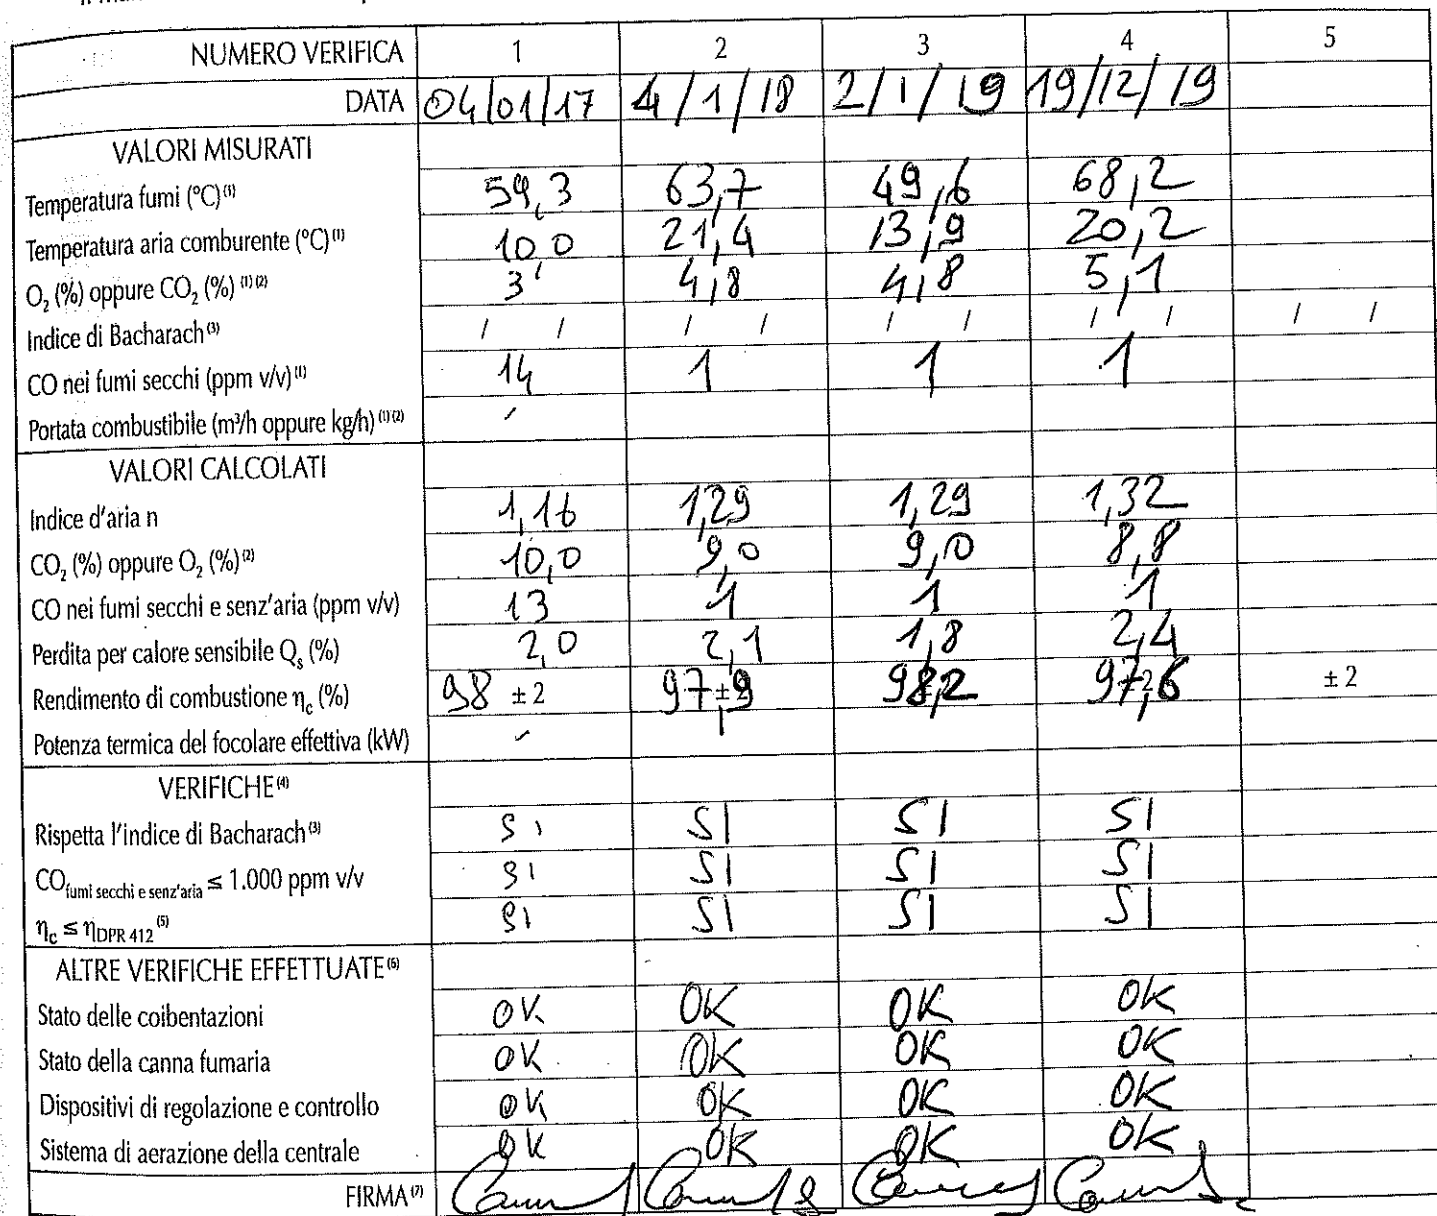 NUMERO VERIFICA 1 2 3 4 5
DATA 04/01/17 4/1/18 2/1/19 19/12/19
VALORI MISURATI
Temperatura fumi (°C)(1) 59,3 63,7 49,6 68,2
Temperatura aria comburente (°C)(1) 10,0 21,4 13,9 20,2
O2 (%) oppure CO2 (%) (1)(2) 3 4,8 4,8 5,1
Indice di Bacharach(3) / / / / / / / / / /
CO nei fumi secchi (ppm v/v)(1) 14 1 1 1
Portata combustibile (m³/h oppure kg/h)(1)(2) -
VALORI CALCOLATI
Indice d'aria n 1,16 1,29 1,29 1,32
CO2 (%) oppure O2 (%)(2) 10,0 9,0 9,0 8,8
CO nei fumi secchi e senz'aria (ppm v/v) 13 1 1 1
Perdita per calore sensibile Qs (%) 2,0 2,1 1,8 2,4
Rendimento di combustione ηc (%) 98 ± 2 97,9 98,2 97,6 ± 2
Potenza termica del focolare effettiva (kW) -
VERIFICHE(4)
Rispetta l'indice di Bacharach(3) SI SI SI SI
CO fumi secchi e senz'aria ≤ 1.000 ppm v/v SI SI SI SI
ηc ≤ ηDPR 412(5) SI SI SI SI
ALTRE VERIFICHE EFFETTUATE(6)
Stato delle coibentazioni OK OK OK OK
Stato della canna fumaria OK OK OK OK
Dispositivi di regolazione e controllo OK OK OK OK
Sistema di aerazione della centrale OK OK OK OK
FIRMA(7)